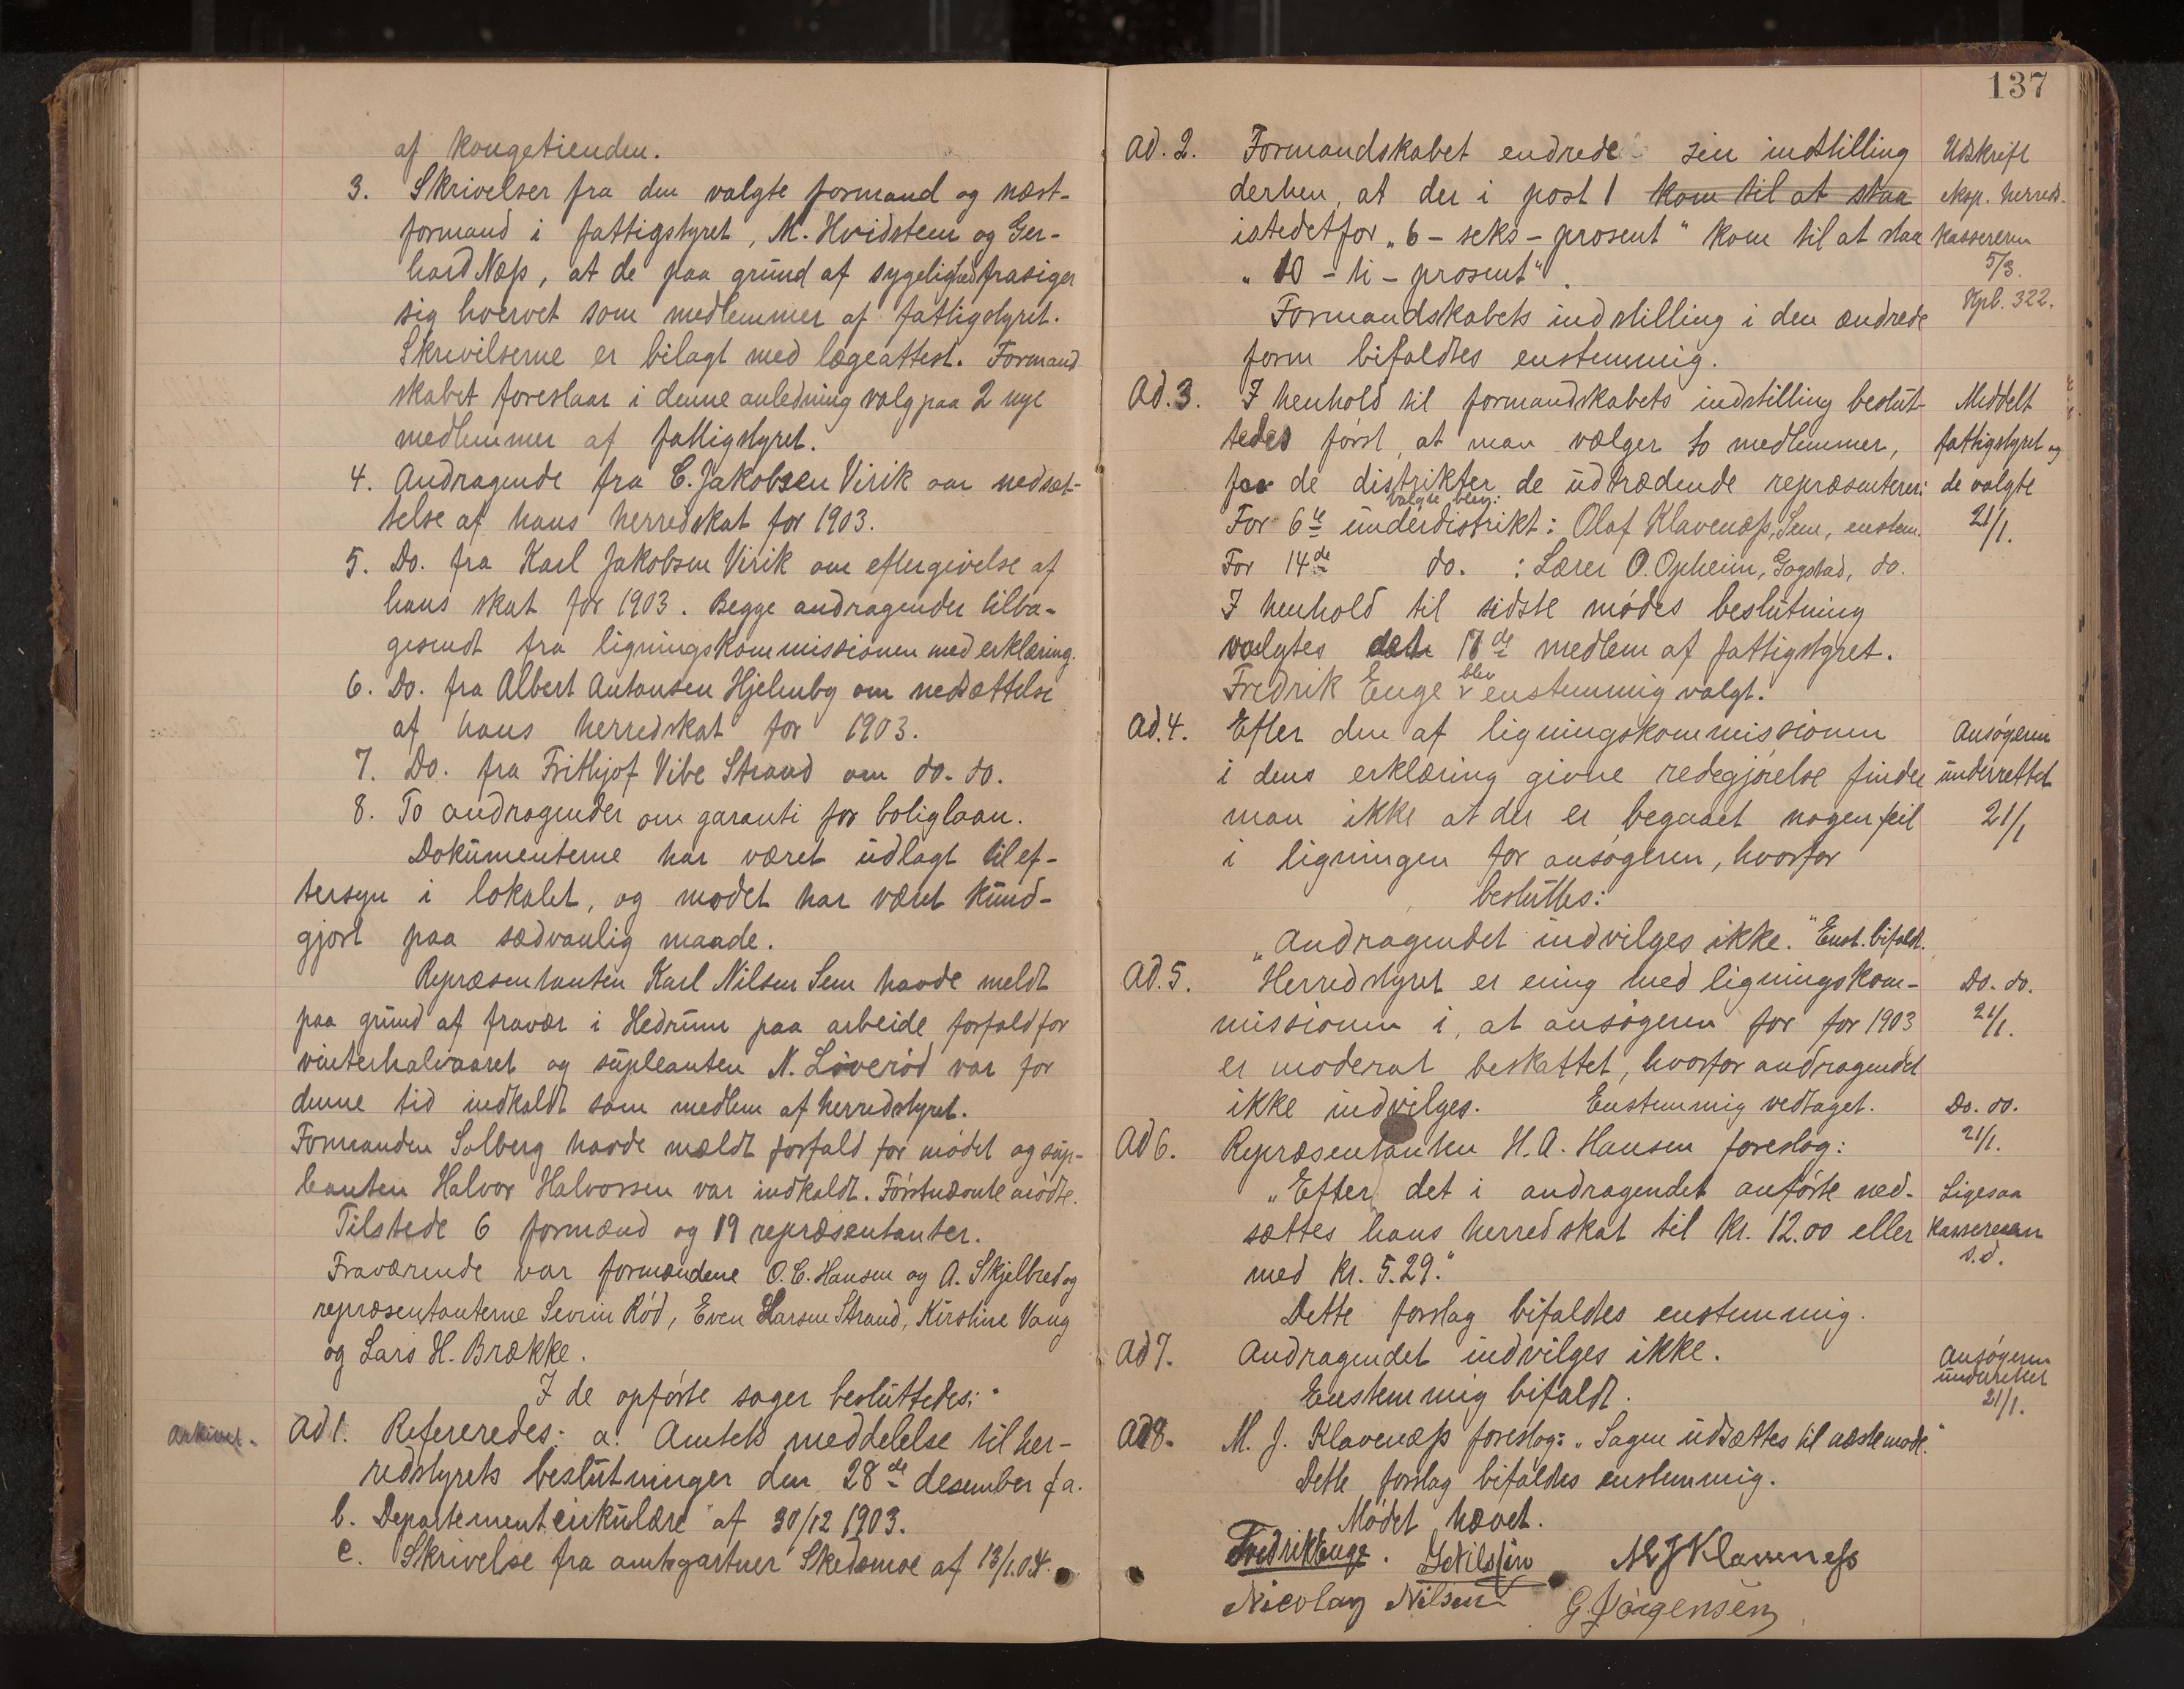 af kongetienden.
3. Skrivelser fra den valgte formand og næst-
formand i fattigstyret, M. Hvidsteen og Ger-
hard Næss, at de paa grund af sygelighed frasiger
sig hvervet som medlemmer af fattigstyret.
Skrivelserne er bilagt med lægeattest. Formand
skabet foreslaar i denne anledning valg paa 2 nye
medlemmer af fattigstyret.
4. Andragende fra C. Jakobsen Virik om nedsæt-
telse af hans herredskat for 1903.
5. Do. fra Karl Jakobsen Virik om eftergivelse af
hans skat for 1903. Begge andragender tilba-
gesendt fra ligningskommissionen med erklæring.
6. Do. fra Albert Antonsen Hjelmbg om nedsættelse
af hans herredskat for 1903.
7. Do. fra Frithjof Vibe Strand om do. do.
8. To andragender om garanti for boliglaan.
Dokumenterne har været udlagt til ef-
tersyn i lokalet, og mødet har været kund-
gjort paa sædvanlig maade.
Repræsentanten Karl Nilsen Sem havde meldt
paa grund af fravær i Hedrum paa arbeide forfald for
vinterhalvaaret og supleanten N. Løverød var for
denne tid indkaldt som medlem af herredstyret.
Formanden Solberg havde mældt forfald for mødet og sup-
leanten Halvor Halvorssen var indkaldt. Førstnævnte mødte.
Tilstede 6 formænd og 19 repræsentanter.
Fraværende var formændene O. C. Hansen og A. Skjelbred og
repræsentanterne Severin Rød, Even Larsen Strand, Kirstine Vang
og Lars H. Brække.
I de opførte sager besluttedes:
arkivet. Ad 1. Refereredes: a. Amtets meddelelse til her-
redstyrets beslutninger den 28de desember f.a.
b. Departementcirkulære af 30/12 1903.
c. Skrivelse fra amtsgartner Skedsmoe af 13/1.04.
137
Ad. 2. Formandskabet endrede sin indstilling
derhen, at der i post 1 kom til at staa
istedetfor „6 - seks - prosent" kom til at staa
„10 - ti - prosent".
Formandskabets indstilling i den ændrede
form bifaldtes enstemmig.
Udskrift
eksp. herreds-
kassereren
5/3.
Kpb. 322.
Ad. 3. I henhold til formandskabets indstilling beslut-
tedes først, at man vælger to medlemmer,
for de distrikter de udtrædende repræsenterer:
valgte blev:
For 6te underdistrikt: Olaf Klavenæss, Sem, enstem.
For 14de do. : Lærer O. Opheim, Gogstad, do.
I henhold til sidste mødes beslutning
valgtes det 17de medlem af fattigstyret.
Fredrik Enge blev enstemmig valgt.
Meddelt
fattigstyret og
de valgte
21/1.
Ad. 4. Efter den af ligningskommissionen
i dens erklæring givne redegjørelse finder
man ikke at der er begaaet nogen feil
i ligningen for ansøgeren, hvorfor
besluttes:
„Andragendet indvilges ikke." Enst. bifaldt.
Ansøgeren
underrettet
21/1
Ad. 5. Herredstyret er enig med ligningskom-
missionen i, at ansøgeren for for 1903
er moderat beskattet, hvorfor andragendet
ikke indvilges. Enstemmig vedtaget.
Do. do.
21/1.
Ad 6. Repræsentanten H. A. Hansen foreslog:
„Efter det i andragendet anførte ned-
sættes hans herredskat til kr. 12.00 eller
med kr. 5.29."
Dette forslag bifaldtes enstemmig.
Do. do.
21/1.
Ligesaa
kassereren
s.d.
Ad 7. Andragendet indvilges ikke.
Enstemmig bifaldt.
Ansøgeren
underrettet
21/1.
Ad 8. M. J. Klavenæss foreslog: „Sagen udsættes til næste møde."
Dette forslag bifaldtes enstemmig.
Mødet hævet.
Fredrik Enge. M J Klaveness
Nicolay Nilsen G Jørgensen